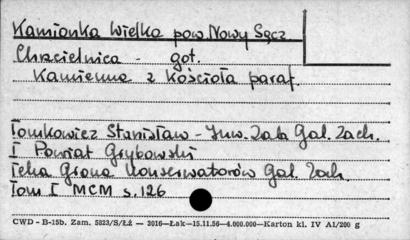 Kamionka Wielka pow. Nowy Sącz
Chrzcielnica - got.
Kamienna z kościoła paraf.
Tomkowicz Stanisław - Inw. Zab. Gal. Zach.
I Powiat Grybowski
Teka Grona Konserwatorów Gal. Zach.
Tom I MCM s. 126
CWD - B-15b. Zam. 5823/S/ŁŻ — 3016—Łak—15.11.56—4.000.000—Karton kl. IV A1/200 g